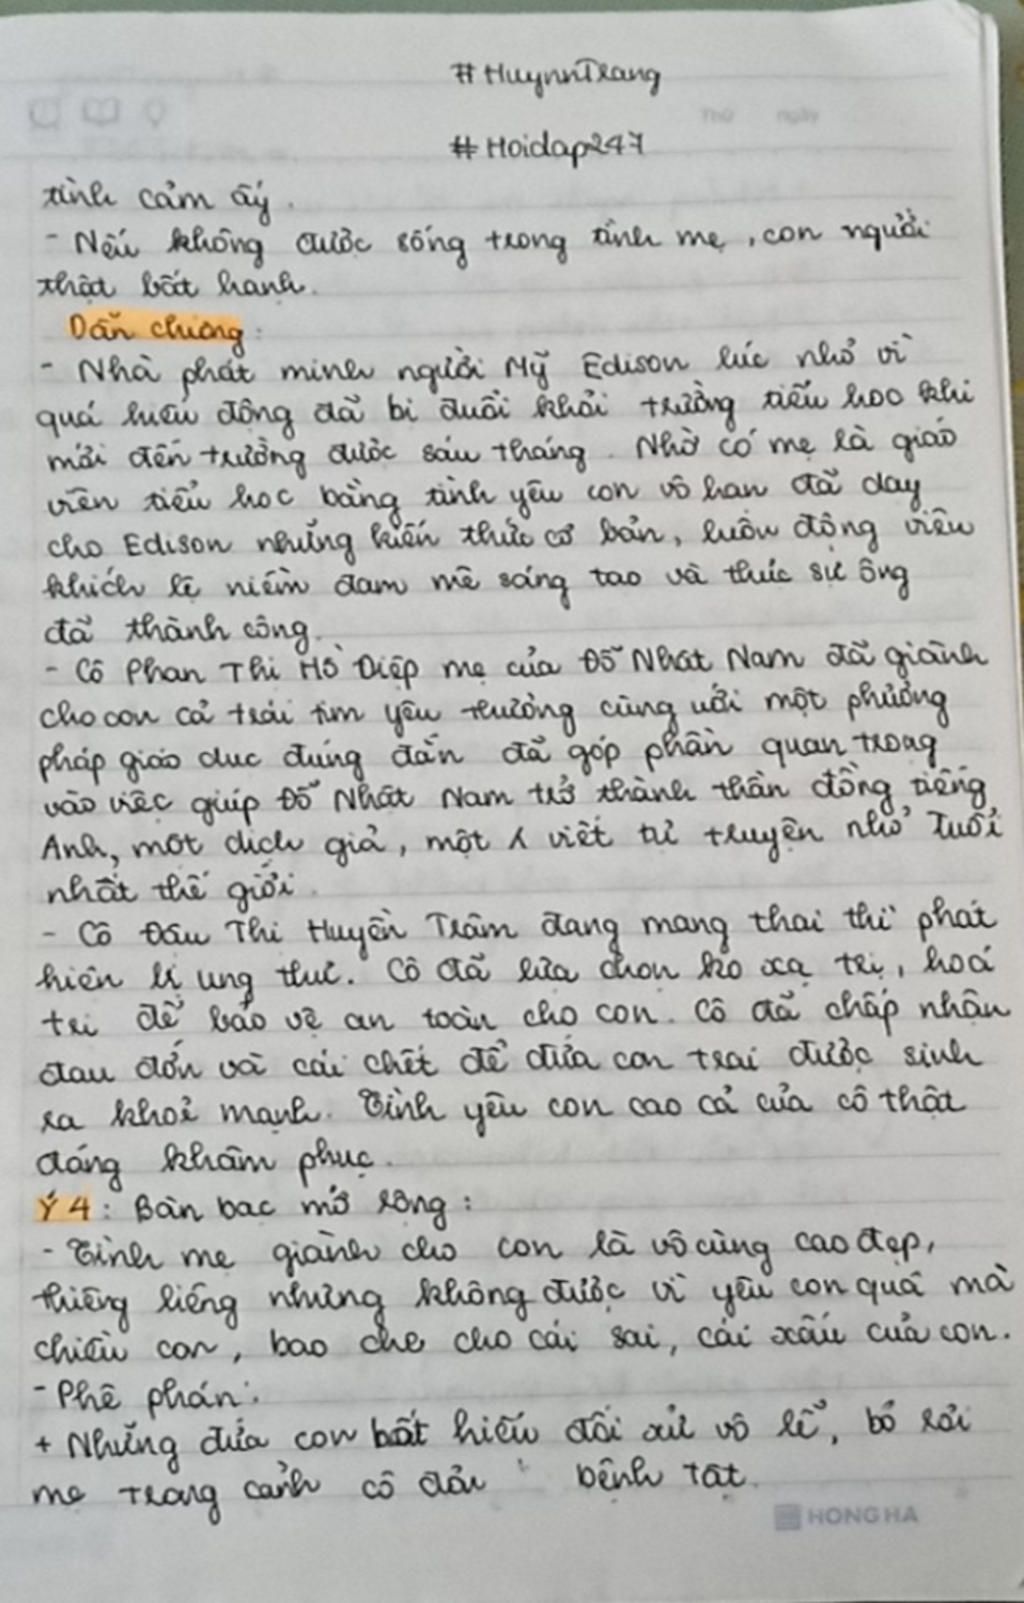 #HuynnTrang
Thứ ngày
#Hoidap247
tình cảm ấy.
- Nếu không được sống trong tình mẹ, con người
thật bất hạnh.
Dẫn chứng:
- Nhà phát minh người Mỹ Edison lúc nhỏ vì
quá hiếu động đã bị đuổi khỏi trường tiểu học khi
mới đến trường được sáu tháng. Nhờ có mẹ là giáo
viên tiểu học bằng tình yêu con vô hạn đã dạy
cho Edison những kiến thức cơ bản, luôn động viên
khích lệ niềm đam mê sáng tạo và thực sự ông
đã thành công.
- Cô Phan Thị Hồ Điệp mẹ của Đỗ Nhật Nam đã giành
cho con cả trái tim yêu thương cùng với một phương
pháp giáo dục đúng đắn đã góp phần quan trọng
vào việc giúp Đỗ Nhật Nam trở thành thần đồng tiếng
Anh, một dịch giả, một ng viết tự truyện nhỏ tuổi
nhất thế giới.
- Cô Đậu Thị Huyền Trâm đang mang thai thì phát
hiện bị ung thư. Cô đã lựa chọn ko xạ trị, hoá
trị để bảo vệ an toàn cho con. Cô đã chấp nhận
đau đớn và cái chết để đứa con trai được sinh
ra khoẻ mạnh. Tình yêu con cao cả của cô thật
đáng khâm phục.
Ý 4: Bàn bạc mở rộng:
- Tình mẹ giành cho con là vô cùng cao đẹp,
thiêng liêng nhưng không được vì yêu con quá mà
chiều con, bao che cho cái sai, cái xấu của con.
- Phê phán:
+ Những đứa con bất hiếu đối xử vô lễ, bỏ rơi
mẹ trong cảnh cô đơn bệnh tật.
HONG HA